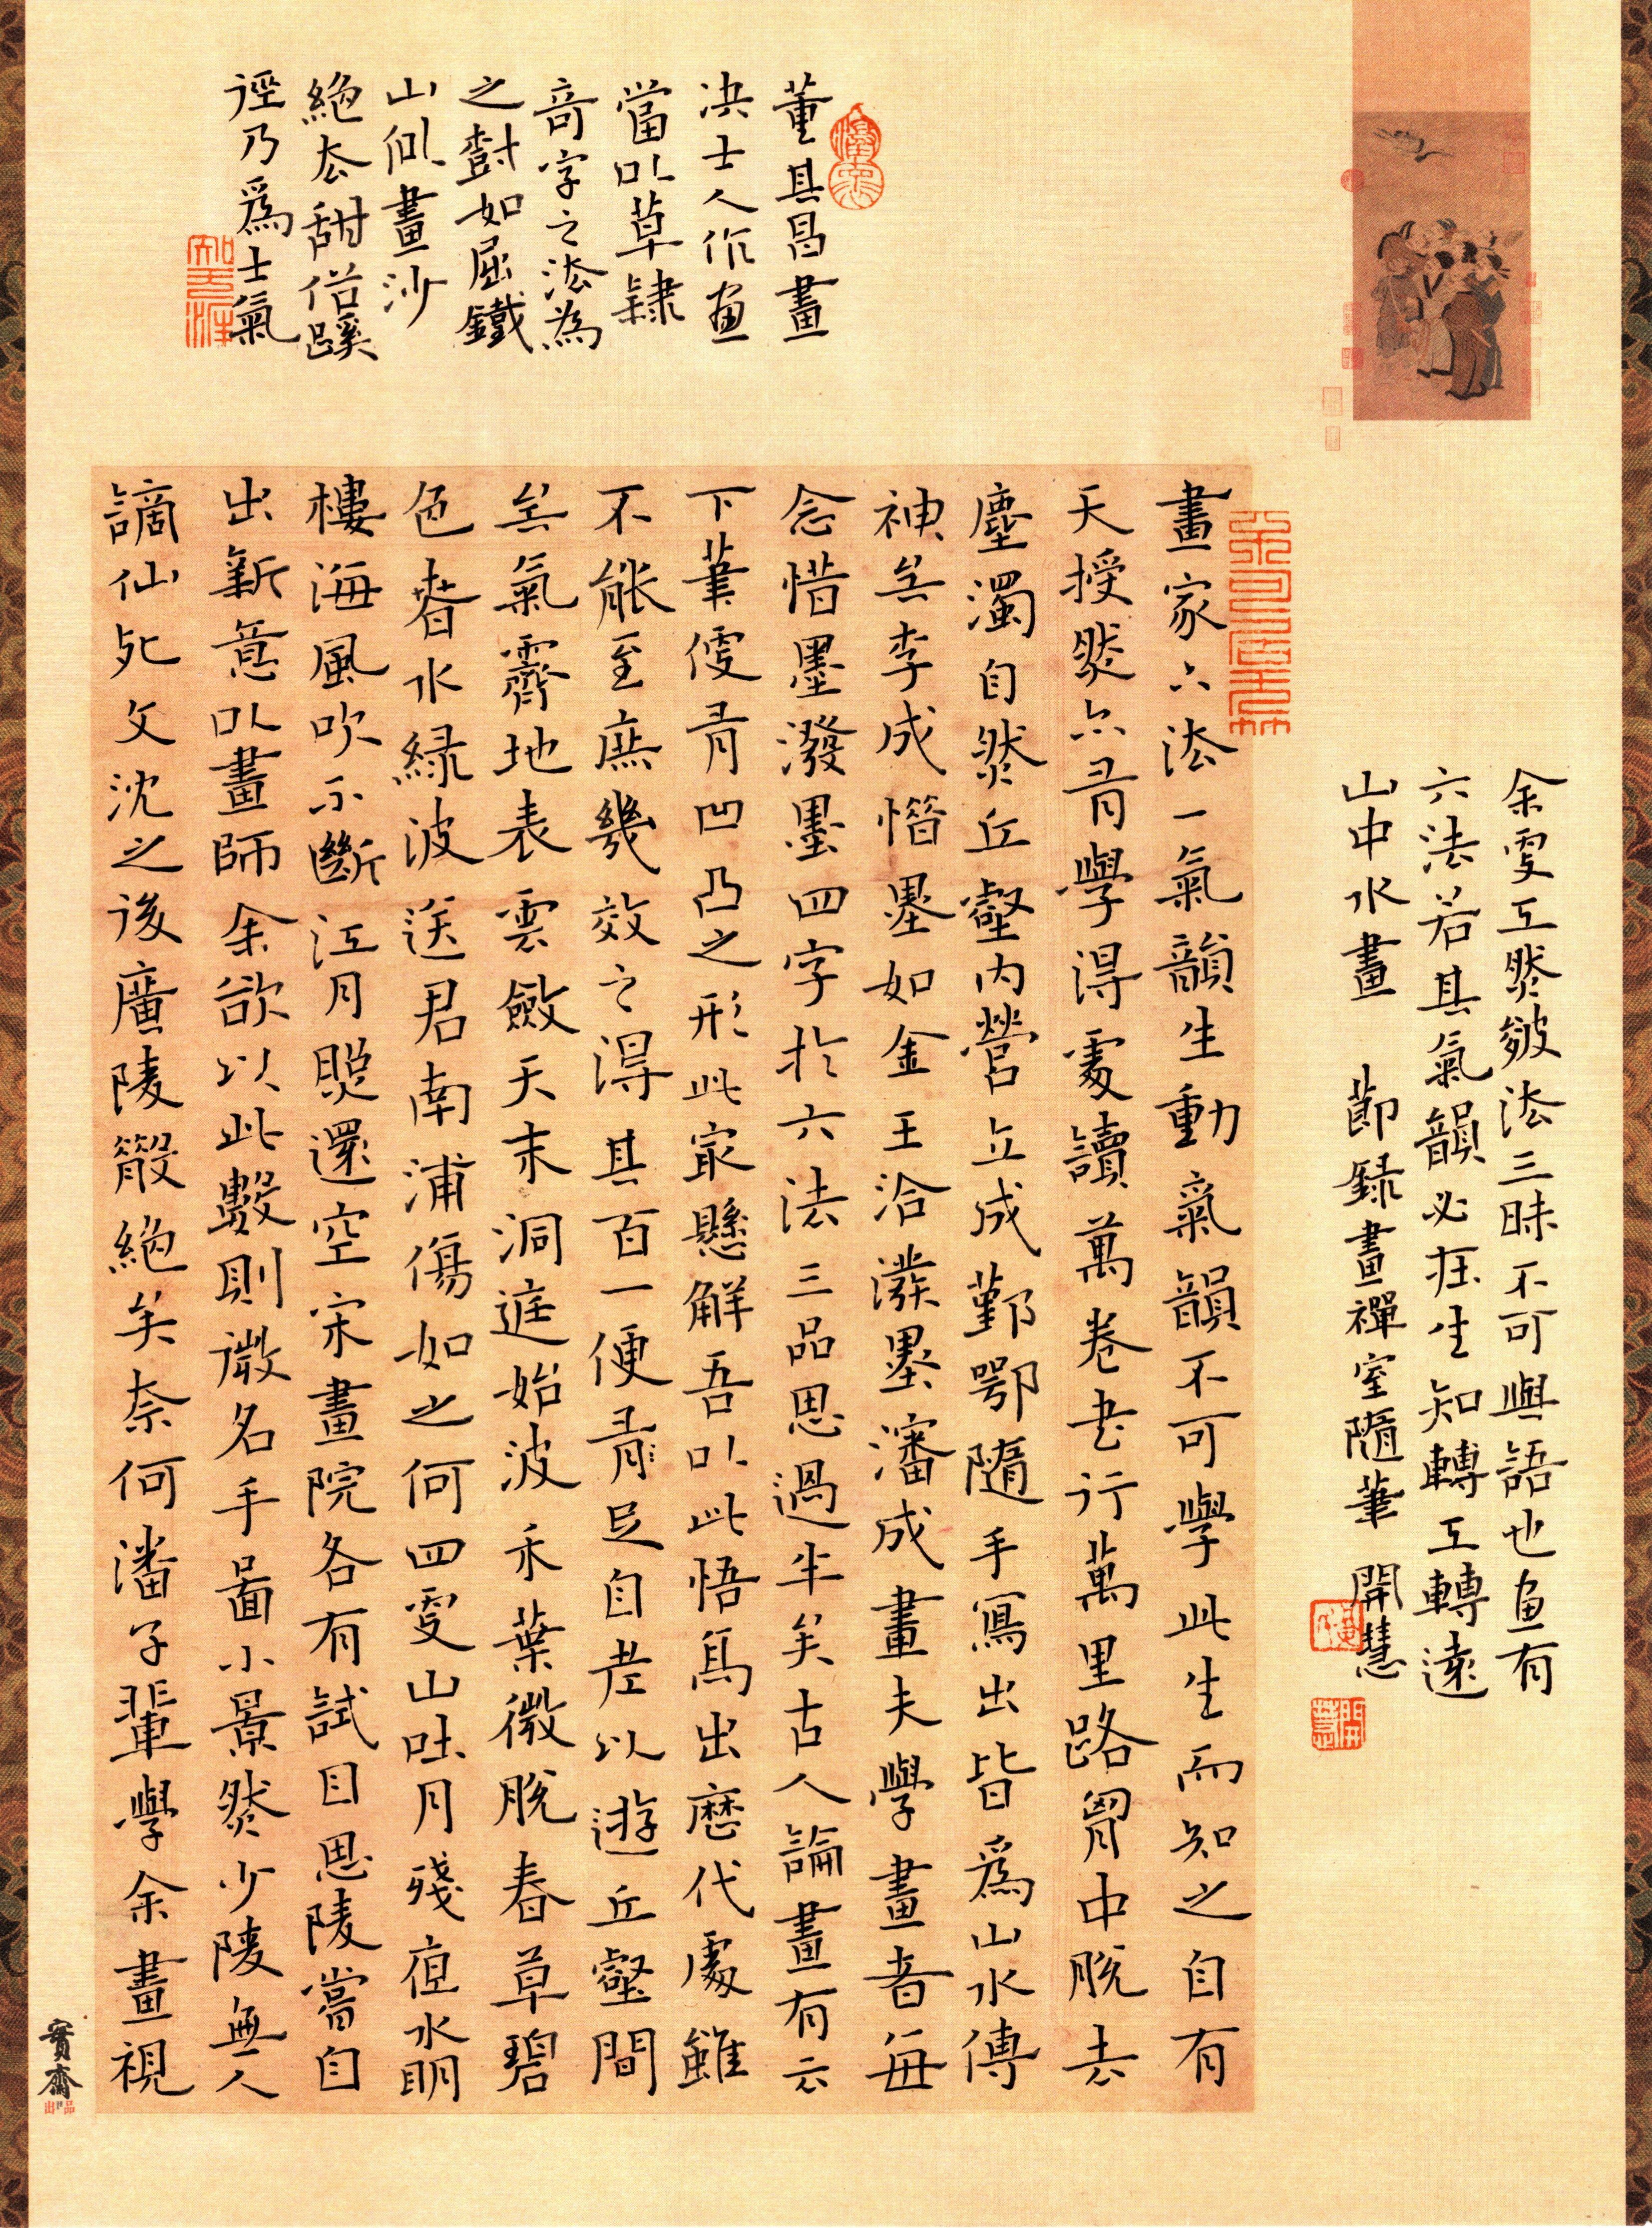 董其昌畫
决士人作画
當以草隸
奇字之法為
之樹如屈鐵
山似畫沙
絶去甜俗蹊
徑乃爲士氣
畫家六法一氣韻生動氣韻不可學此生而知之自有
天授然亦有學得處讀萬卷書行萬里路胷中脫去
塵濁自然丘壑内營立成鄞鄂隨手寫出皆爲山水傳
神矣李成惜墨如金王洽潑墨瀋成畫夫學畫者每
念惜墨潑墨四字於六法三品思過半矣古人論畫有云
下筆便有凹凸之形此最懸解吾以此悟高出歷代處雖
不能至庶幾效之得其百一便有足自老以遊丘壑間
矣氣霽地表雲斂天末洞庭始波木葉微脫春草碧
色春水緑波送君南浦傷如之何四更山吐月殘夜水明
樓海風吹不斷江月照還空宋畫院各有試目思陵嘗自
出新意以畫師余欲以此數則徵名手圖小景然少陵無人
謫仙死文沈之後廣陵散絶矣奈何潘子輩學余畫視
余更工然皴法三昧不可與語也画有
六法若其氣韻必在生知轉工轉遠
山中水畫 節録畫禪室隨筆 開慧
寳齋
出品